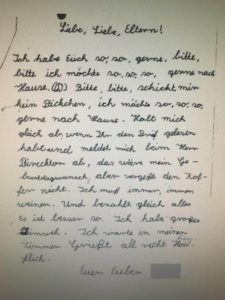 Liebe, Liebe, Eltern!
Ich habe Euch so, so, gerne, bitte,
bitte ich möchte so, so, so, gerne nach
Hause. Bitte, bitte, schickt mir
kein Päckchen, ich möchte so, so, so,
gerne nach Hause. Holt mich
gleich ab, wenn Ihr den Brief gelesen
habt und meldet mich beim Herr
Direktor ab, das wäre mein Ge-
burtstagswunsch, aber vergeßt den Kof-
fer nicht. Ich muß immer, immer
weinen. Und bezahlt gleich alles
Es ist besser so. Ich habe großes
Heimweh. Ich warte in meinem
Zimmer Grüßt all recht Herz-
lich.
Euer lieben